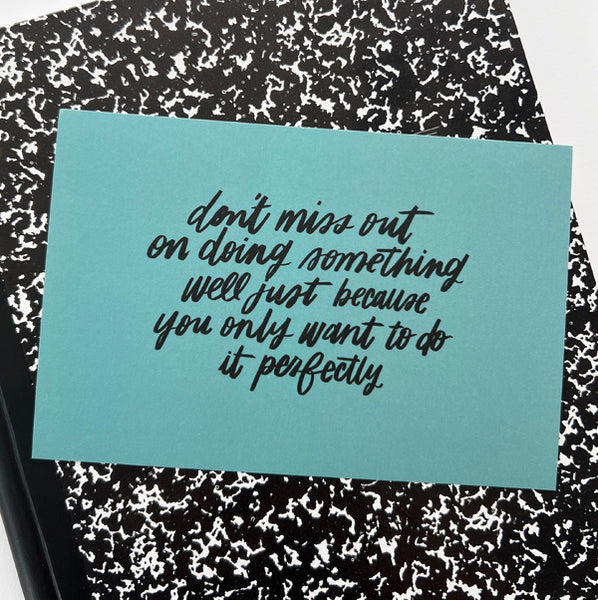 don't miss out
on doing something
well just because
you only want to do
it perfectly